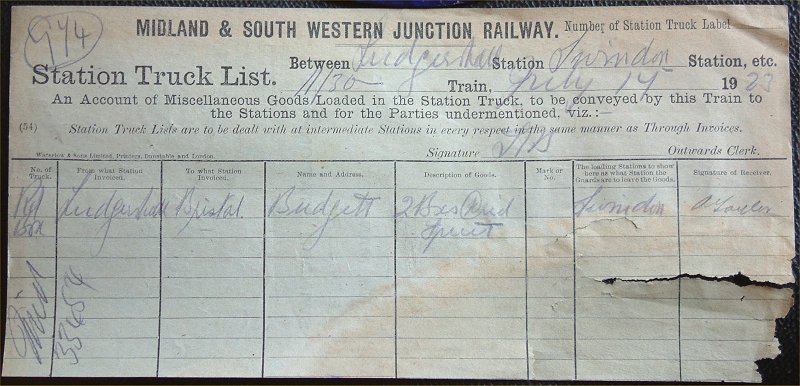 MIDLAND & SOUTH WESTERN JUNCTION RAILWAY. Number of Station Truck Label
Between Ludgershall Station Swindon Station, etc.
Station Truck List. 11/30 Train, July 14 1923
An Account of Miscellaneous Goods Loaded in the Station Truck, to be conveyed by this Train to
the Stations and for the Parties undermentioned, viz.:—
(54) Station Truck Lists are to be dealt with at intermediate Stations in every respect in the same manner as Through Invoices.
Waterlow & Sons Limited, Printers, Dunstable and London. Signature Outwards Clerk.
No. of Truck. From what Station Invoiced. To what Station Invoiced. Name and Address. Description of Goods. Mark or No. The loading Stations to show here as what Station the Guards are to leave the Goods. Signature of Receiver.
Rd Box Ludgershall Bristol Budgett 2 Bxs Spirit Swindon
33454